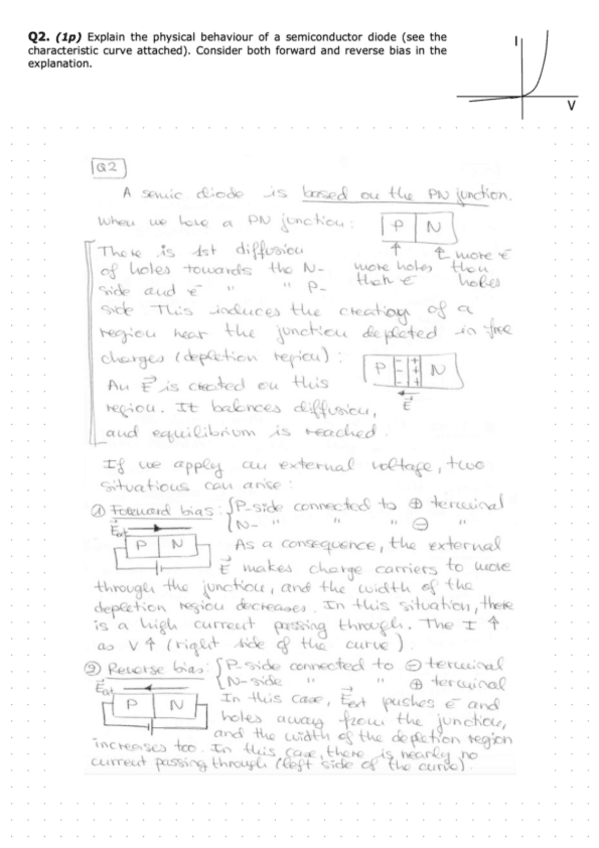 Q2. (1p) Explain the physical behaviour of a semiconductor diode (see the
characteristic curve attached). Consider both forward and reverse bias in the
explanation.
I
V
Q2
A semic diode is based on the PN junction.
When we have a PN junction:
P N
more holes than e⁻
more e⁻ than holes
There is 1st diffusion
of holes towards the N-
side and e⁻ " " P-
side. This induces the creation of a
region near the junction depleted in free
charges (depletion region):
P - - + + N
E
An E is created on this
region. It balances diffusion,
and equilibrium is reached.
If we apply an external voltage, two
situations can arise:
① Forward bias: { P-side connected to ⊕ terminal
N- " " " ⊖ "
Eext
P N
As a consequence, the external
E makes charge carriers to move
through the junction, and the width of the
depletion region decreases. In this situation, there
is a high current passing through. The I ↑
as V ↑ (right side of the curve).
② Reverse bias: { P-side connected to ⊖ terminal
N-side " " ⊕ terminal
Eext
P N
In this case, Eext pushes e⁻ and
holes away from the junction,
and the width of the depletion region
increases too. In this case, there is nearly no
current passing through (left side of the curve).